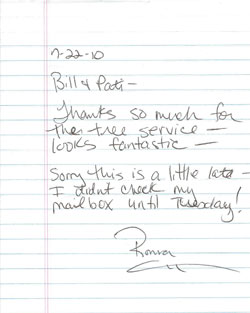 7-22-10
Bill & Pati-
Thanks so much for
the tree service -
looks fantastic -
Sorry this is a little late -
I didn't check my
mailbox until Tuesday!